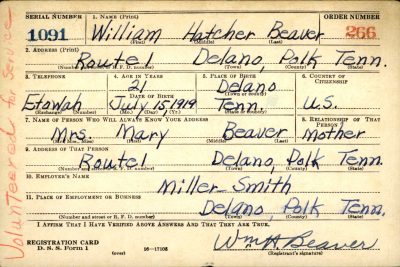 SERIAL NUMBER 1. NAME (Print) ORDER NUMBER
1091 William Hatcher Beaver 266
(First) (Middle) (Last)
2. ADDRESS (Print)
Route 1 Delano, Polk Tenn.
(Number and street or R. F. D. number) (Town) (County) (State)
3. TELEPHONE 4. AGE IN YEARS 5. PLACE OF BIRTH 6. COUNTRY OF CITIZENSHIP
21 Delano
(Town or county)
DATE OF BIRTH
Etowah July 15, 1919 Tenn. U.S.
(Exchange) (Number) (Mo.) (Day) (Yr.) (State or country)
7. NAME OF PERSON WHO WILL ALWAYS KNOW YOUR ADDRESS 8. RELATIONSHIP OF THAT PERSON
Mrs. Mary Beaver Mother
(Mr., Mrs., Miss) (First) (Middle) (Last)
9. ADDRESS OF THAT PERSON
Route 1 Delano, Polk Tenn.
(Number and street or R. F. D. number) (Town) (County) (State)
10. EMPLOYER'S NAME
Miller Smith
11. PLACE OF EMPLOYMENT OR BUSINESS
Delano, Polk Tenn.
(Number and street or R. F. D. number) (Town) (County) (State)
I AFFIRM THAT I HAVE VERIFIED ABOVE ANSWERS AND THAT THEY ARE TRUE.
REGISTRATION CARD
D. S. S. Form 1 (over) 16—17105
Wm H. Beaver
(Registrant's signature)
Volunteered for Service